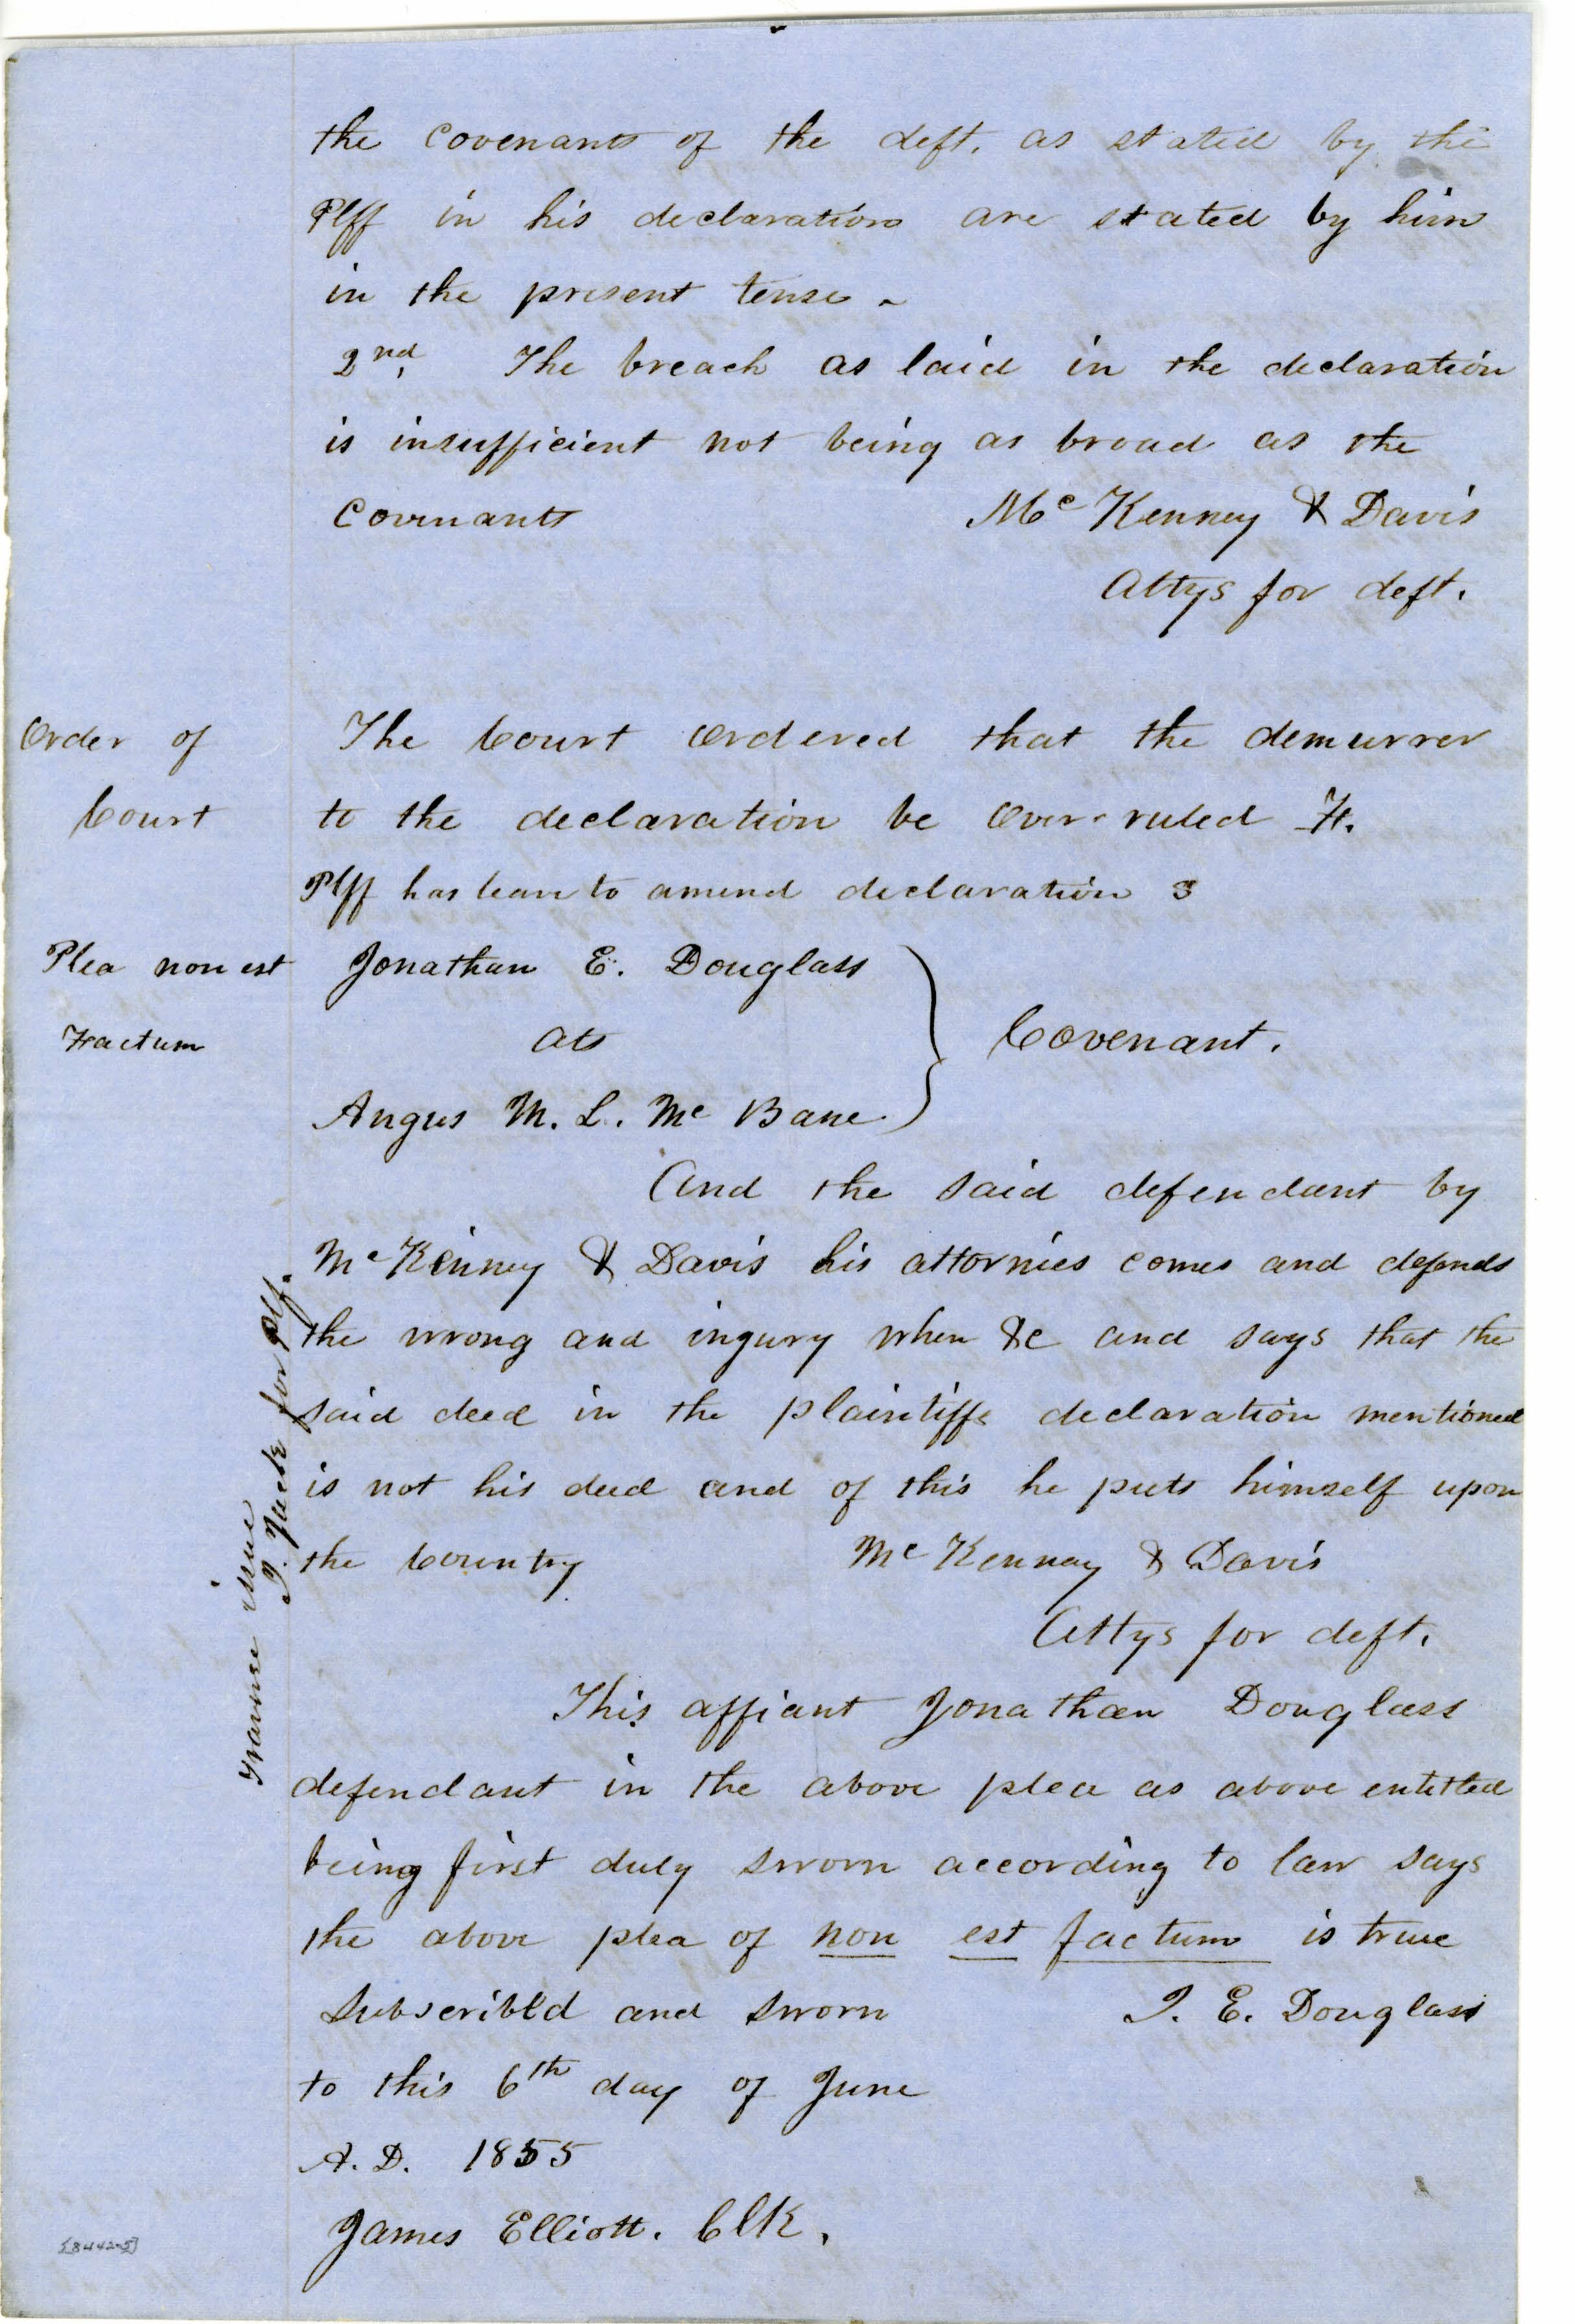 the covenants of the deft. as stated by the
Plff in his declaration are stated by him
in the present tense -
2nd. The breach as laid in the declaration
is insufficient not being as broad as the
Covenants Mc Kenney & Davis
Attys for deft.
Order of The Court Ordered that the demurrer
Court to the declaration be over-ruled &
Plff has leave to amend declaration
Plea non est Jonathan E. Douglass
Factum ats Covenant.
Angus M. L. Mc Bane
And the said defendant by
Mc Kinney & Davis his attornies comes and defends
the wrong and ingury when &c and says that the
said deed in the plaintiffs declaration mentioned
is not his deed and of this he puts himself upon
the Country Mc Kenney & Davis
Attys for deft.
Traverse issue
for Plf.
This affiant Jonathan Douglass
defendant in the above plea as above entitled
being first duly sworn according to law says
the above plea of non est factum is true
Subscribed and sworn J. E. Douglass
to this 6th day of June
A. D. 1855
James Elliott. Clk.
[8442-5]